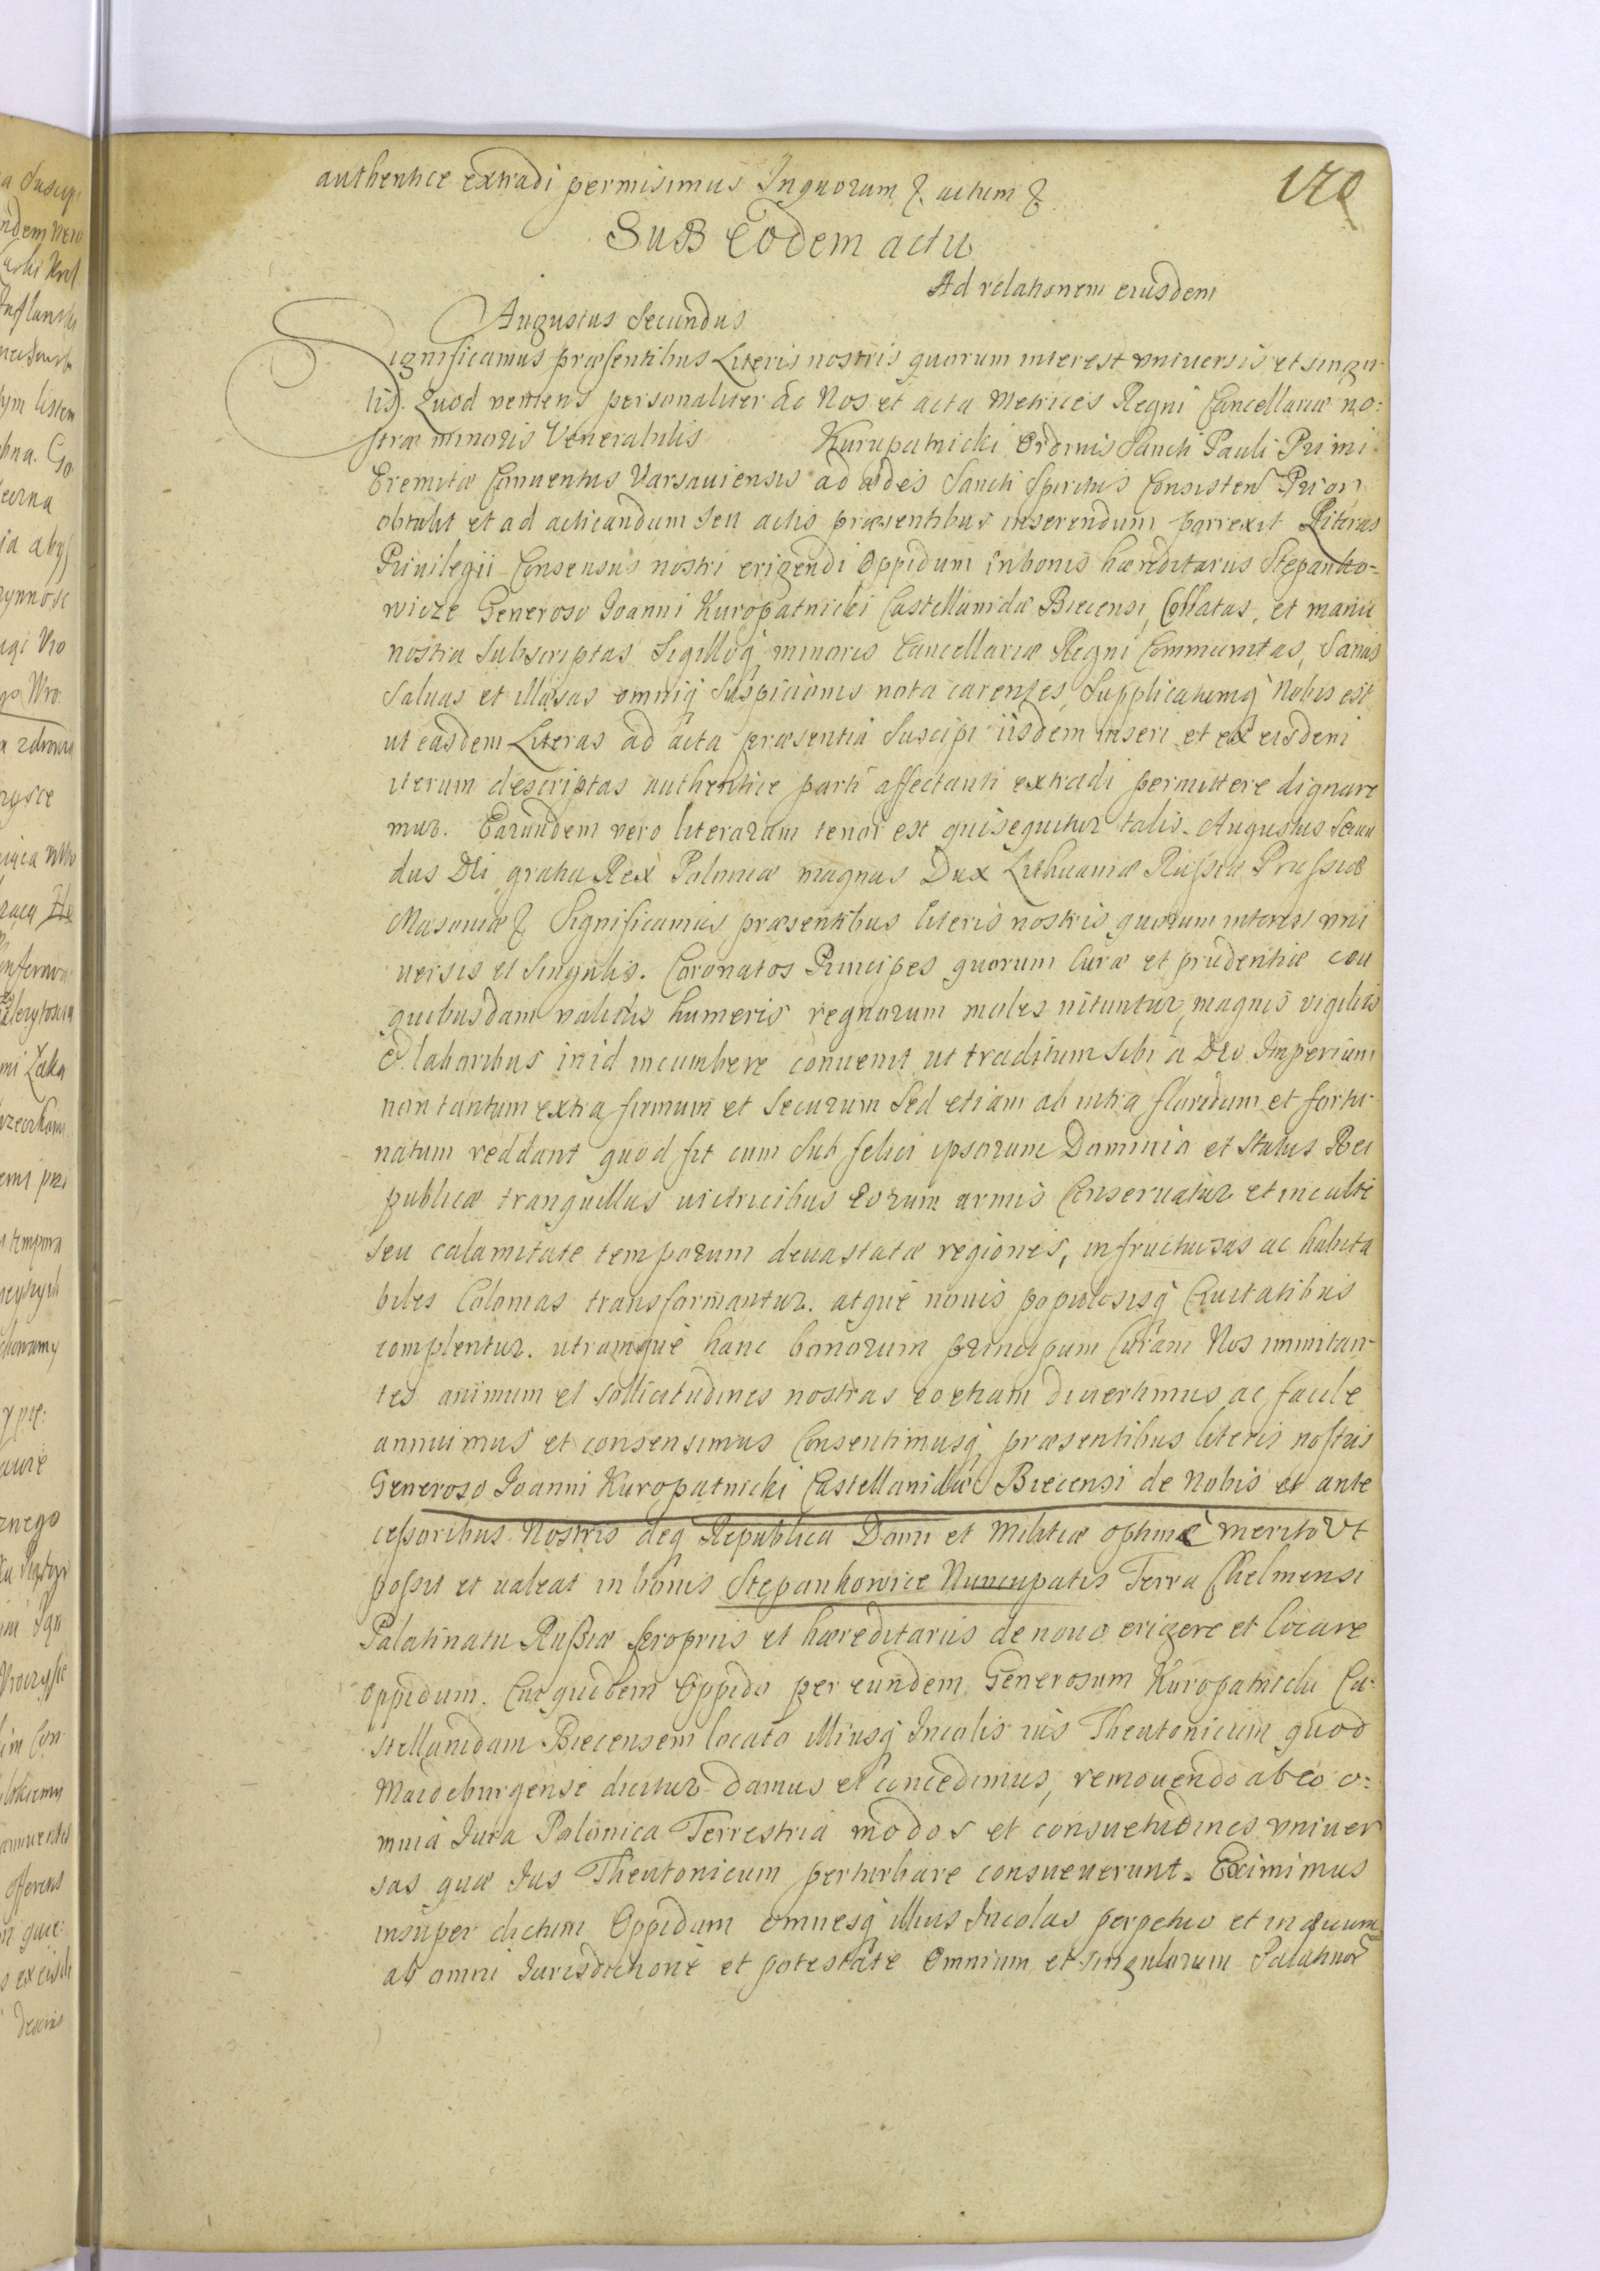 authentice extradi permisimus Inquorum &. actum &
170
Sub Eodem actu
Ad relationem eiusdem
Augustus Secundus
Significamus præsentibus Literis nostris quorum interest vniuersis et singu-
lis. Quod veniens personaliter ac Nos et acta Metrices Regni Cancellariæ no:
stræ minoris Venerabilis Kuropatnicki Ordinis Sancti Pauli Primi
Eremitæ Conuentus Varsauiensis ad ædes Sancti Spiritus Consisten Prior
obtulit et ad acticandum seu actis præsentibus inserendum porrexit Literas
Priuilegii Consensus nostri erigendi Oppidum in bonis hæreditariis Stepanko-
wicze Generoso Ioanni Kuropatnicki Castellanidæ Biecensi, Collatas, et manu
nostra Subscriptas Sigilloq minoris Cancellariæ Regni Communitas, Sanas
Saluas et illæsas omniq Suspicionis nota carentes, Supplicatumq Nobis est
ut easdem Literas ad acta præsentia Suscipi iisdem inseri et ex eisdem
iterum descriptas authentice parti affectanti extradi permittere dignare
mur. Earundem vero literarum tenor est qui sequitur talis. Augustus Secun
dus Dei gratia Rex Poloniæ magnus Dux Lithuaniæ Russiæ Prussiæ
Masouiæ & Significamus præsentibus literis nostris quorum interest vni
uersis et Singulis. Coronatos Principes quorum Curæ et prudentiæ ceu
quibusdam validis humeris regnorum moles nituntur, magnis vigiliis
& laboribus in id incumbere conuenit ut traditum sibi a Deo Imperium
non tantum extra firmum et Securum Sed etiam ab intra floridum et fortu-
natum reddant quod fit cum Sub felici ipsorum Dominio et Status Rei
publicæ tranquillus victricibus Eorum armis Conseruatur et incultæ
seu calamitate temporum deuastatæ regiones, in fructuosas ac habita
biles Colonias transformantur. atque nouis populosisq Ciuitatibus
complentur. utramque hanc bonorum principum Curam Nos immitan-
tes animum et sollicitudines nostras eo etiam diuertimus ac facile
annuimus et consensimus Consentimusq præsentibus literis nostris
Generoso Ioanni Kuropatnicki Castellanidæ Biecensi de Nobis et ante
cessoribus Nostris deq Republica Domi et Militiæ optime merito Vt
possit et valeat in bonis Stepankowice Nuncupatis Terra Chelmensi
Palatinatu Russiæ propriis et hæreditariis de nouo erigere et locare
Oppidum. Cui quidem Oppido per eundem Generosum Kuropatnicki Ca-
stellanidam Biecensem locato illiusq Incolis ius Theutonicum quod
Maideburgense dicitur damus et concedimus, remouendo ab eo o:
mnia Iura Polonica Terrestria modos et consuetudines vniuer
sas quæ Ius Theutonicum perturbare consueuerunt. Eximimus
insuper dictum Oppidum omnesq illius Incolas perpetuo et in æuum
ab omni Iurisdictione et potestate Omnium et singulorum Palatinor